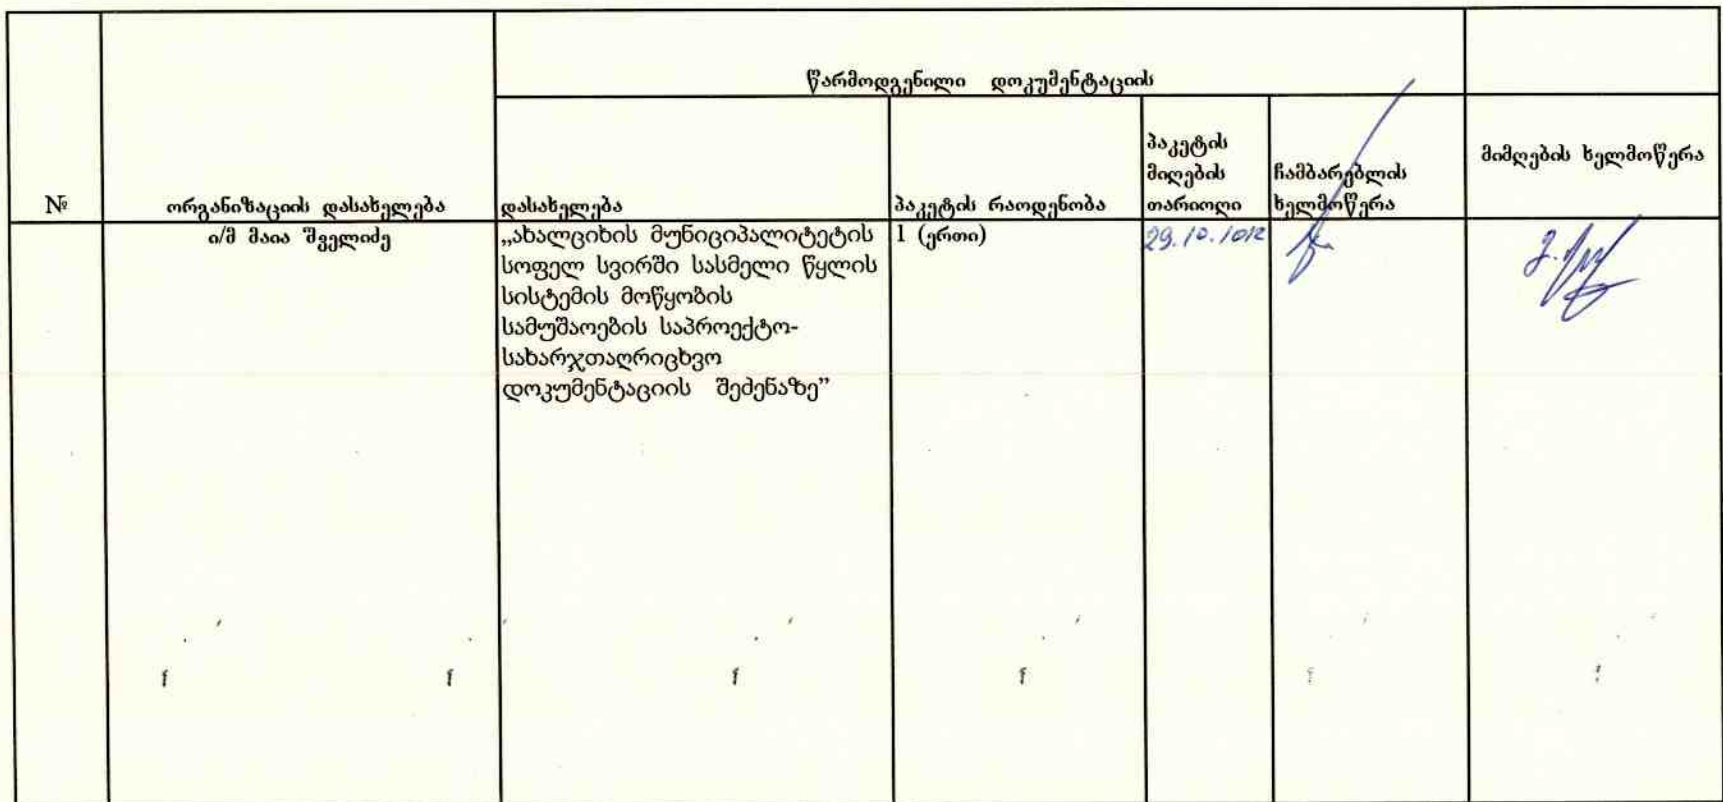 წარმოდგენილი დოკუმენტაციის
№
ორგანიზაციის დასახელება
დასახელება
პაკეტის რაოდენობა
პაკეტის
მიღების
თარიოღი
ჩამბარებლის
ხელმოწერა
მიმღების ხელმოწერა
ი/მ მაია შველიძე
„ახალციხის მუნიციპალიტეტის
სოფელ სვირში სასმელი წყლის
სისტემის მოწყობის
სამუშაოების საპროექტო-
სახარჯთაღრიცხვო
დოკუმენტაციის შეძენაზე”
1 (ერთი)
29.10.1012